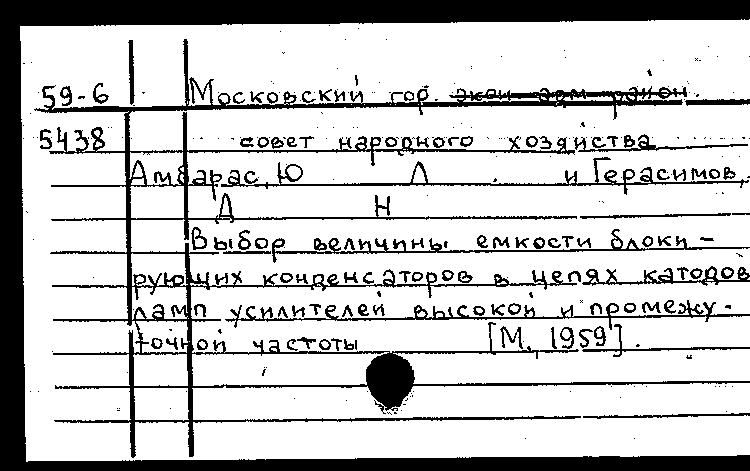 59-6 Московский гор. экон. адм. район.
5438 совет народного хозяйства
Амбарас, Ю Л. и Герасимов,
Д Н
Выбор величины емкости блоки-
рующих конденсаторов в цепях катодов
ламп усилителей высокой и промежу-
точной частоты [М., 1959].